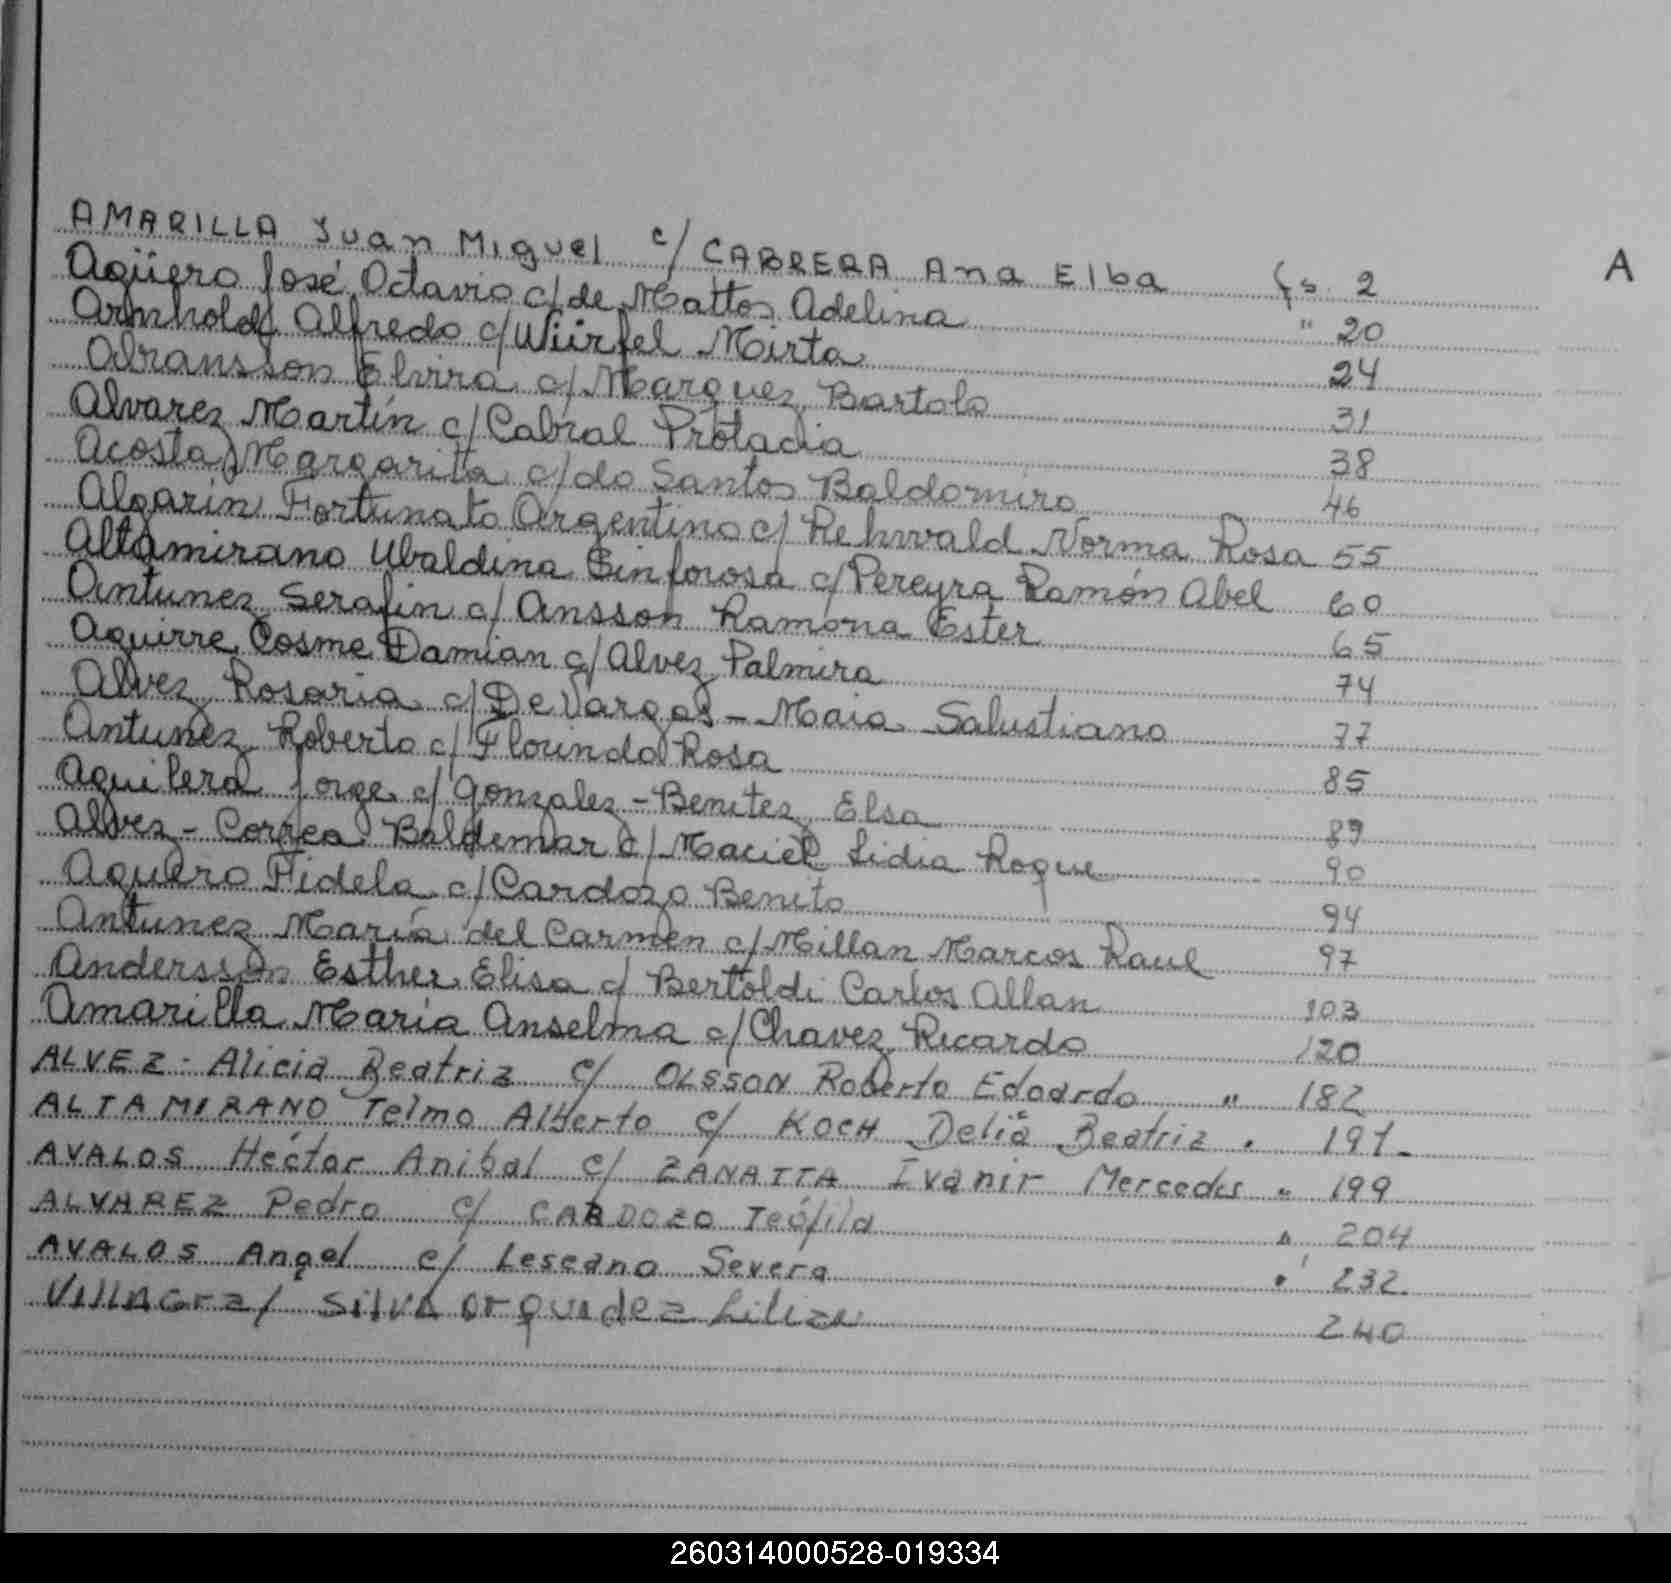 A
AMARILLA Juan Miguel c/ CABRERA Ana Elba fs. 2
Agüero José Octavio c/ de Mattos Adelina " 20
Armhold Alfredo c/ Würfel Mirta 24
Abransson Elvira c/ Marquez Bartolo 31
Alvarez Martín c/ Cabral Protacia 38
Acosta Margarita c/ do Santos Baldomiro 46
Algarin Fortunato Argentino c/ Rehwald Norma Rosa 55
Altamirano Ubaldina Sinforosa c/ Pereyra Ramón Abel 60
Antunez Serafin c/ Ansson Ramona Ester 65
Aguirre Cosme Damian c/ Alvez Palmira 74
Alvez Rosaria c/ De Vargas - Maia Salustiano 77
Antunez Roberto c/ Florinda Rosa 85
Aguilera Jorge c/ Gonzalez - Benitez Elsa 89
Alvez - Correa Baldemar c/ Maciel Lidia Roque 90
Aguero Fidela c/ Cardozo Benito 94
Antunez María del Carmen c/ Millan Marcos Raul 97
Andersson Esther Elisa c/ Bertoldi Carlos Allan 103
Amarilla María Anselma c/ Chavez Ricardo 120
ALVEZ - Alicia Beatriz c/ OLSSON Roberto Edoardo " 182
ALTAMIRANO Telmo Alberto c/ KOCH Delia Beatriz " 191
AVALOS Héctor Anibal c/ ZANATTA Ivanir Mercedes " 199
ALVAREZ Pedro c/ CARDOZO Teófila " 204
AVALOS Angel c/ Lescano Severa " 232
Villagra / Silva Orquidez Liliza 240
260314000528-019334